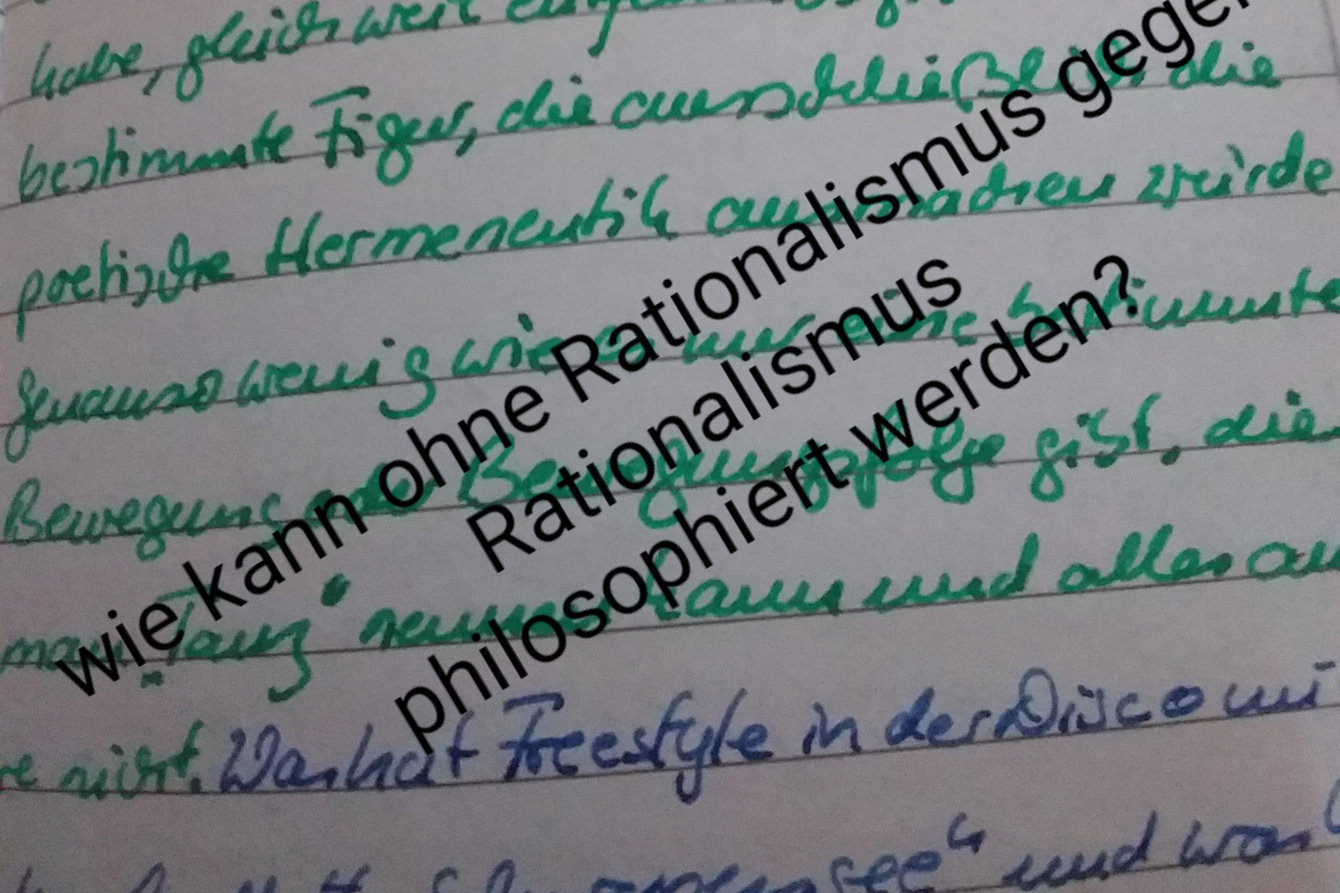 habe, gleich weit
bestimmte Figur, die ausschließlich die
poetische Hermeneutik ausmachen würde
genauso wenig wie es nur eine bestimmte
Bewegung oder Bewegungsfolge gibt, die
man "Tanz" nennen kann und alles an
re nicht. Was hat Freestyle in der Disco mi
see" und wan
wie kann ohne Rationalismus gegen
Rationalismus
philosophiert werden?